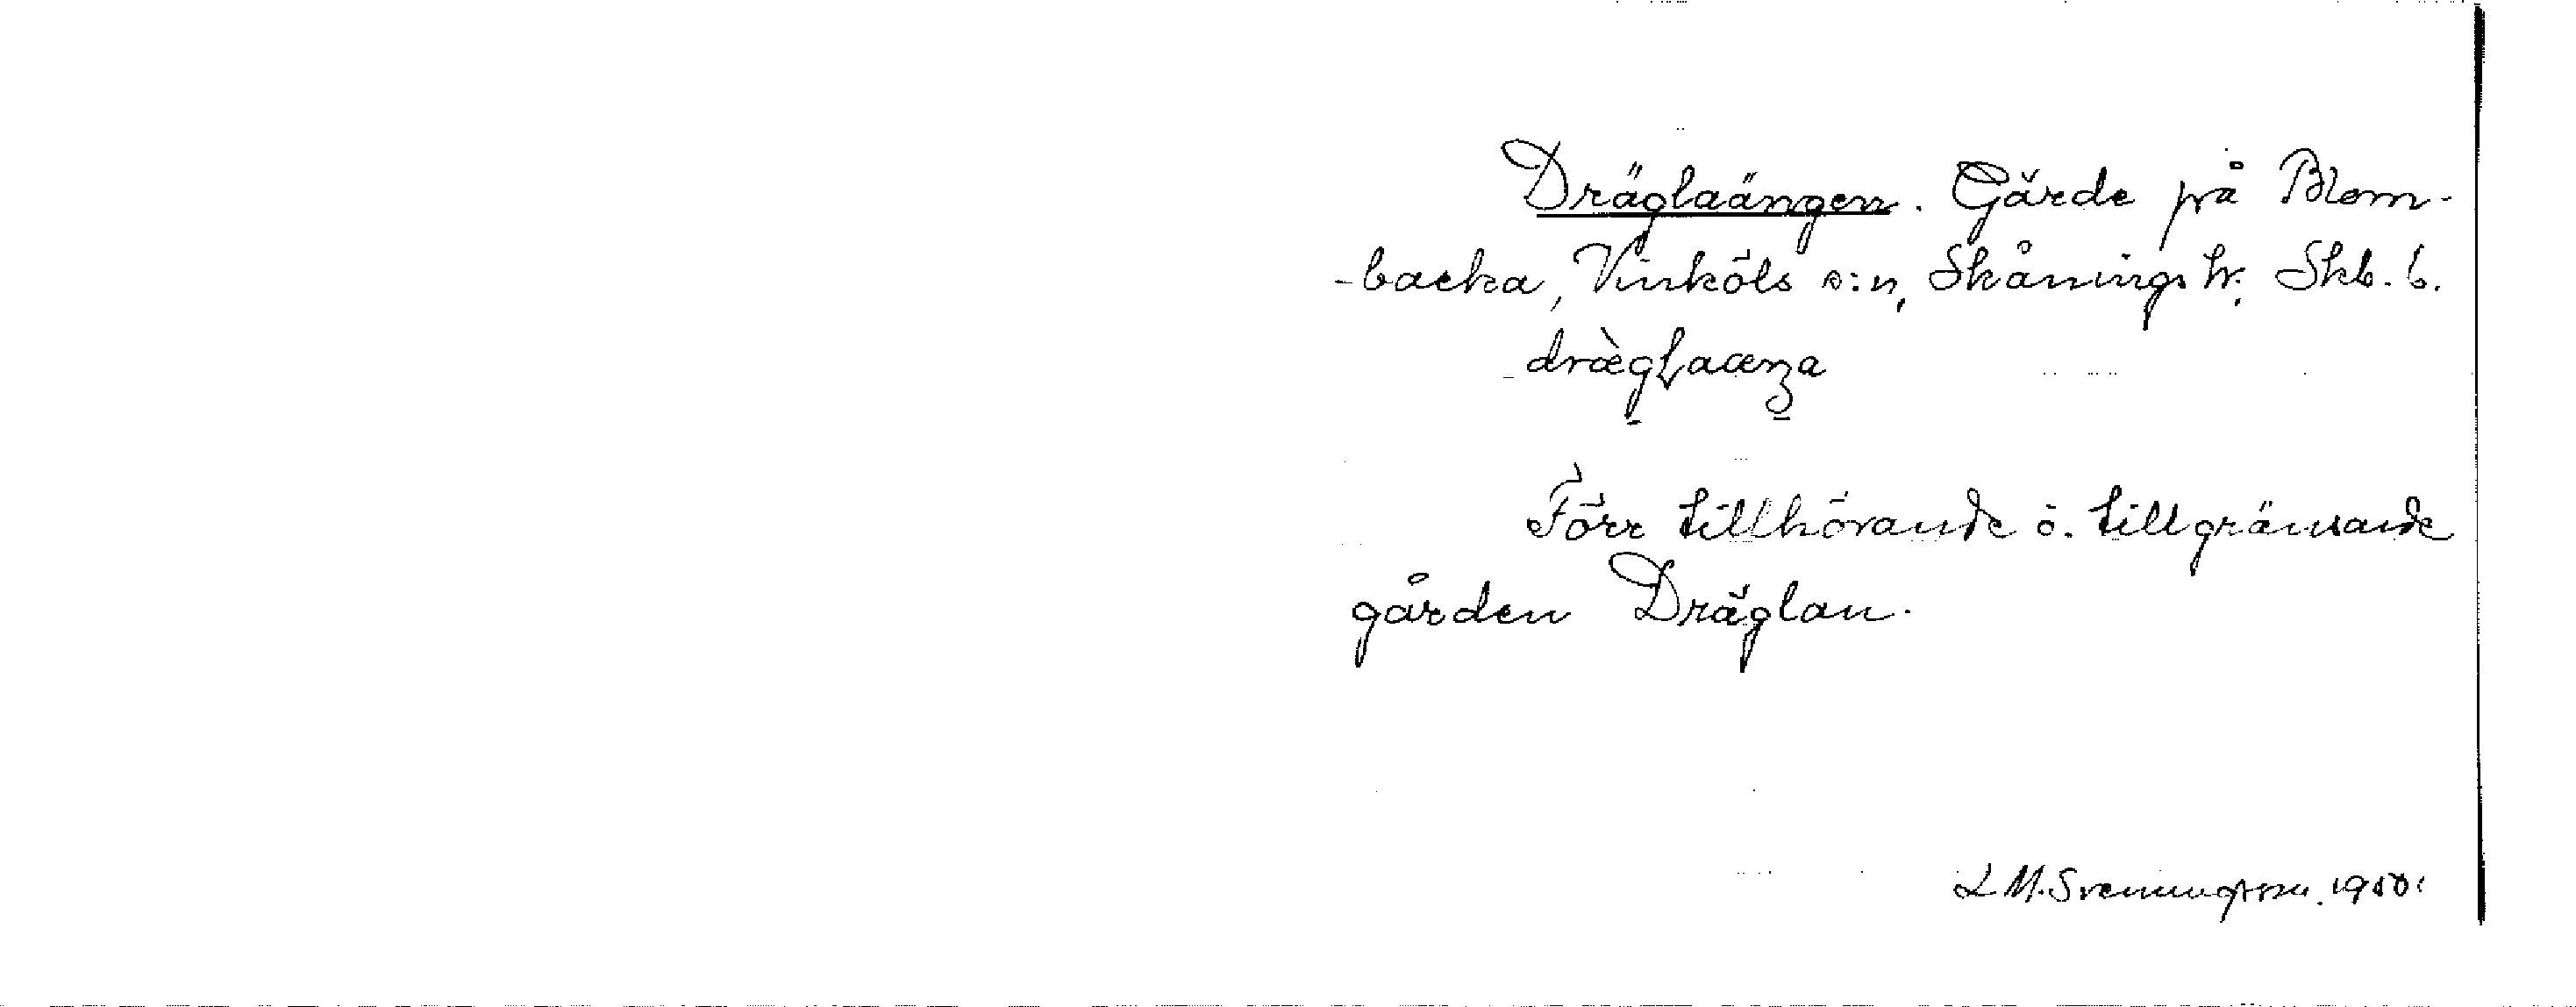 Dräglaängen. Gärde på Blom-
-backa, Vinköls s:n, Skånings hr. Skb. l.
dræ̀gɫaæŋa
Förr tillhörande o. tillgränsande
gården Dräglan.
L M. Svenungsson. 1950.